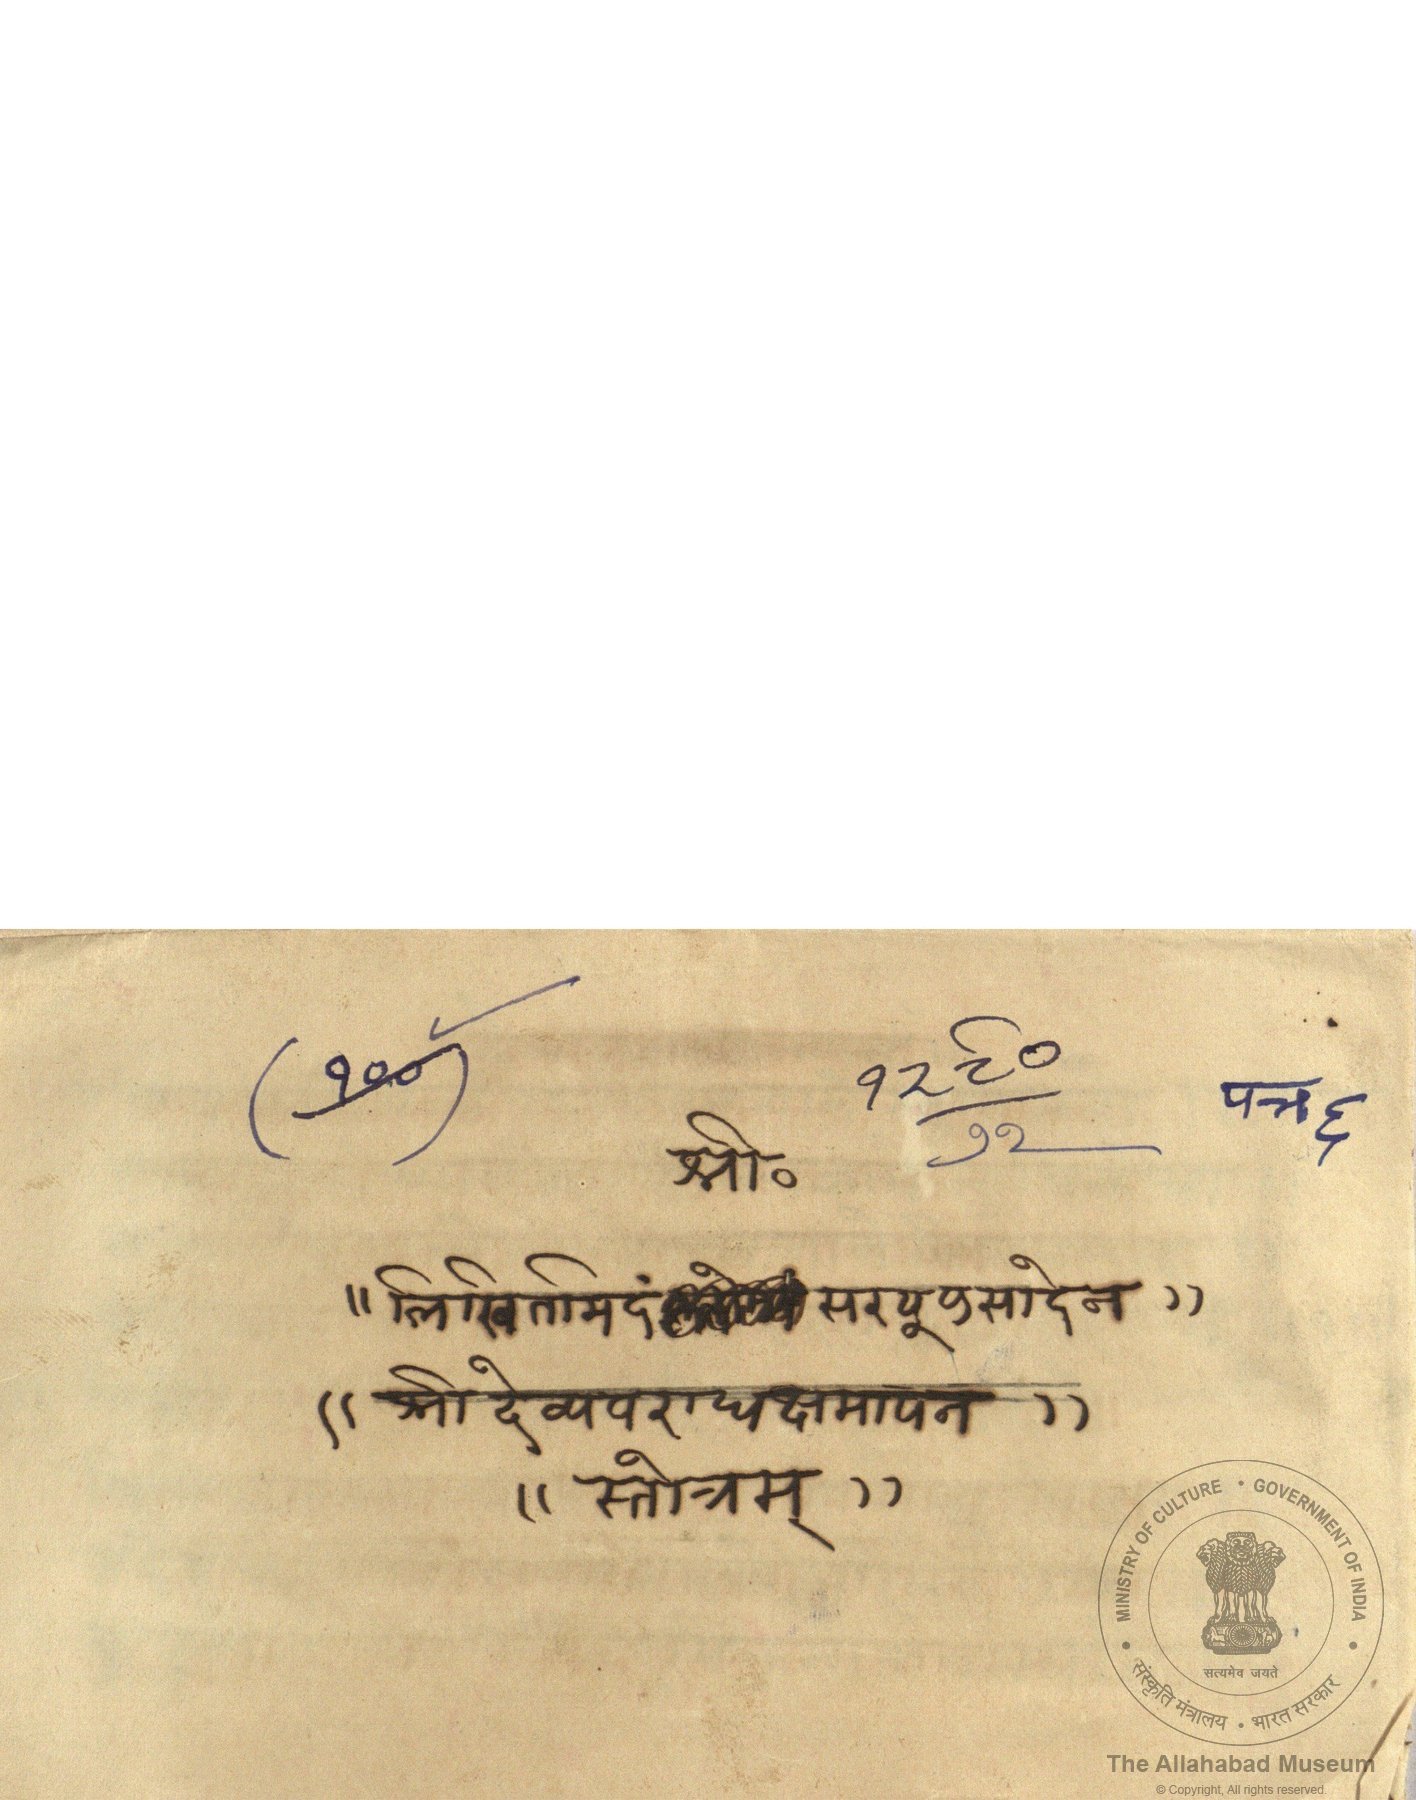 (१००)
१२८०
७२
पत्र ६
श्री०
॥ लिखितमिदं सरयूप्रसादेन ॥
॥ श्री देव्यपराधक्षमापन ॥
॥ स्तोत्रम् ॥
MINISTRY OF CULTURE • GOVERNMENT OF INDIA
सत्यमेव जयते
संस्कृति मंत्रालय • भारत सरकार
The Allahabad Museum
© Copyright, All rights reserved.